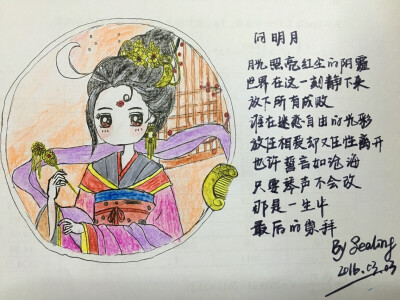 问明月
月光照亮红尘的阴霾
世界在这一刻静下来
放下所有成败
谁在迷恋自由的光彩
放任相爱却不任性离开
也许誓言如沧海
只要琴声不会改
那是一生中
最后的崇拜
By Sealing
2016.03.03